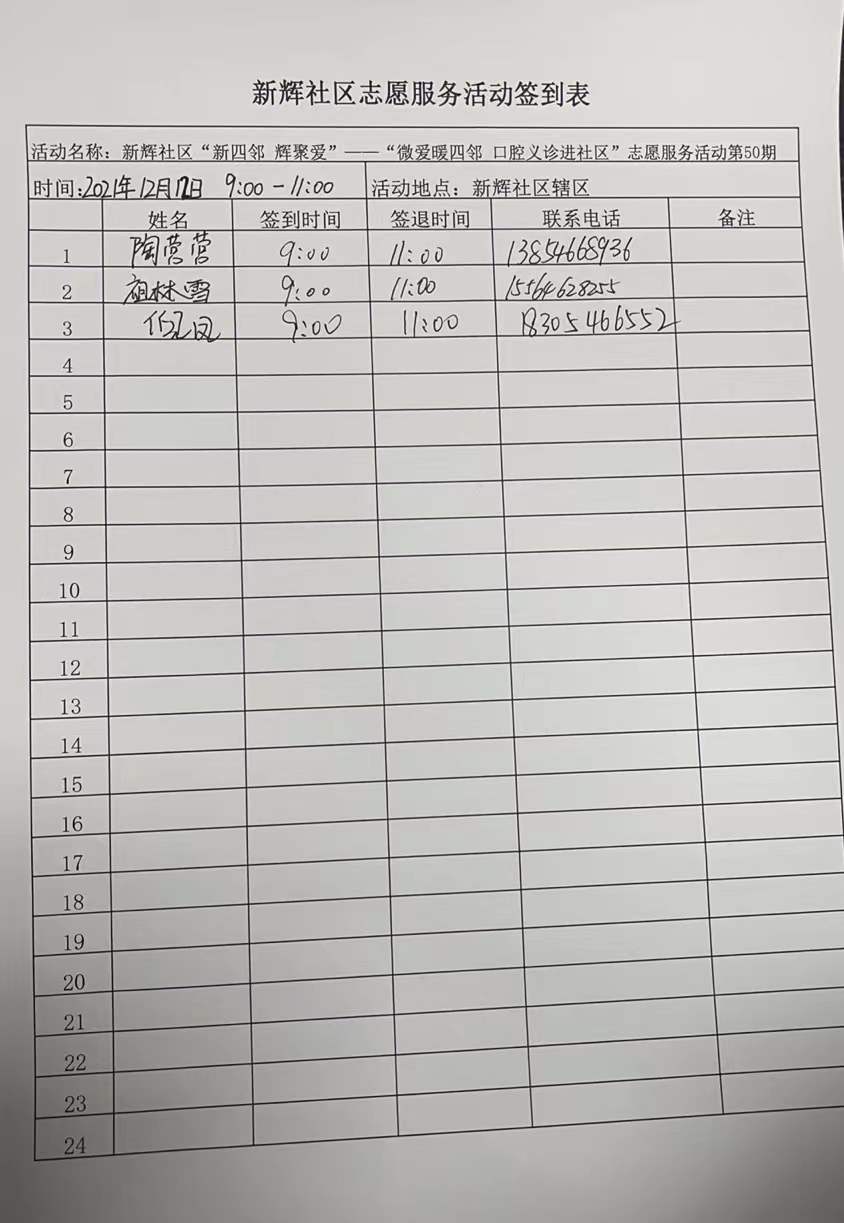 新辉社区志愿服务活动签到表
活动名称：新辉社区“新四邻 辉聚爱”——“微爱暖四邻 口腔义诊进社区”志愿服务活动第50期
时间：2021年12月17日 9:00-11:00 活动地点：新辉社区辖区
姓名 签到时间 签退时间 联系电话 备注
1 陶营营 9:00 11:00 13854668936
2 祖林雪 9:00 11:00 15564628255
3 9:00 11:00 18305466552
4
5
6
7
8
9
10
11
12
13
14
15
16
17
18
19
20
21
22
23
24